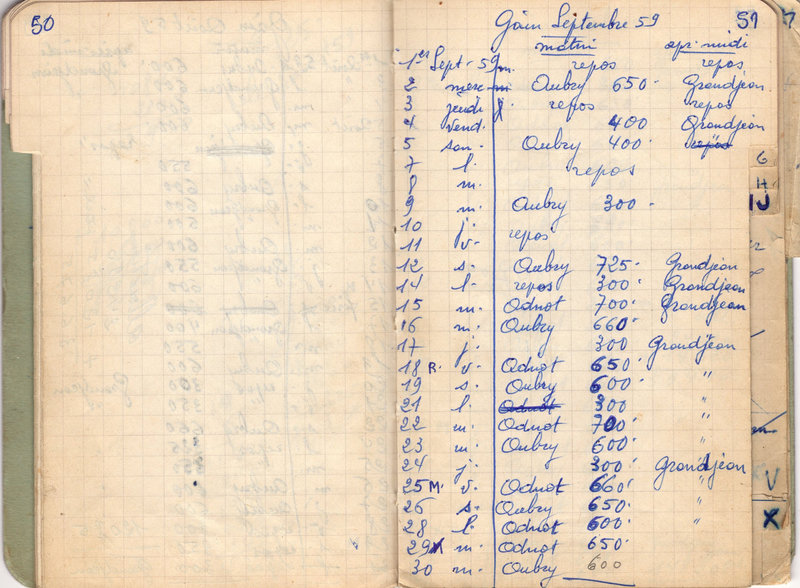 50
Gain Septembre 59
51
matin apr. midi
1er Sept - 59 m. repos repos
2 merc m. Aubry 650 Grandjean
3 jeudi j. repos repos
4 vend. 400 Grandjean
5 sam. Aubry 400 repos
7 l. repos
8 m.
9 m. Aubry 300
10 j. repos
11 v.
12 s. Aubry 725 Grandjean
14 l. repos 300 Grandjean
15 m. Odnot 700 Grandjean
16 m. Aubry 660
17 j. 300 Grandjean
18 R. v. Odnot 650 "
19 s. Aubry 600
21 l. Odnot 300 "
22 m. Odnot 700 "
23 m. Aubry 600 "
24 j. 300 Grandjean
25 M. v. Odnot 660 "
26 s. Aubry 650 "
28 l. Odnot 600 "
29 m. Odnot 650
30 m. Aubry 600
G
H
IJ
V
X